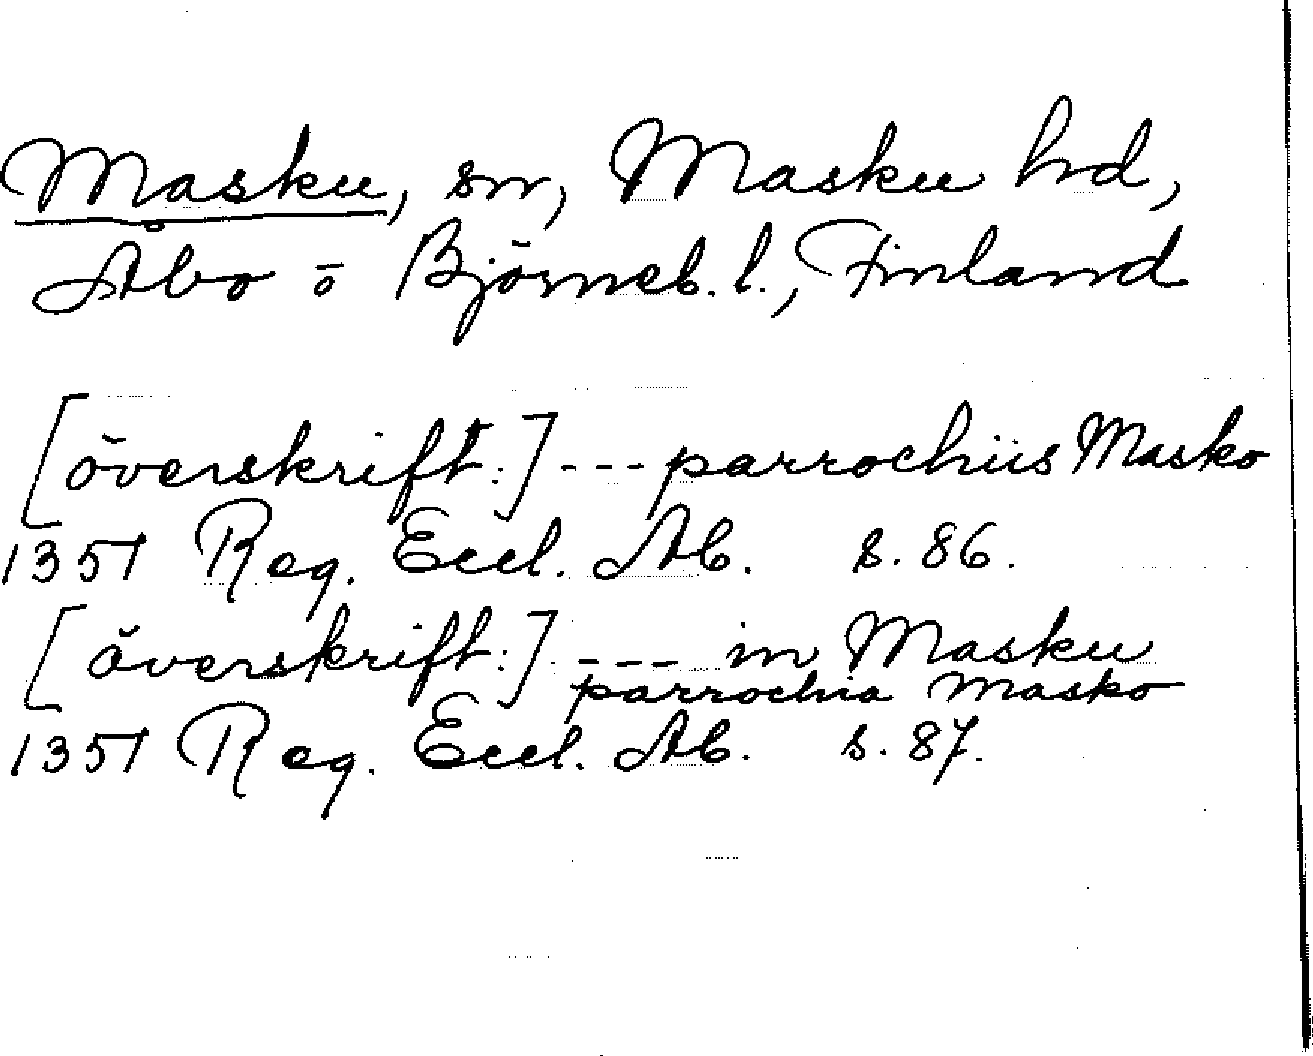 Masku, sn, Masku hd,
Åbo o Björneb. l., Finland
[överskrift:] --- parrochiis Masko
1351 Reg. Eccl. Ab. s. 86.
[överskrift:] --- in Masku
parrochia Masko
1351 Reg. Eccl. Ab. s. 87.